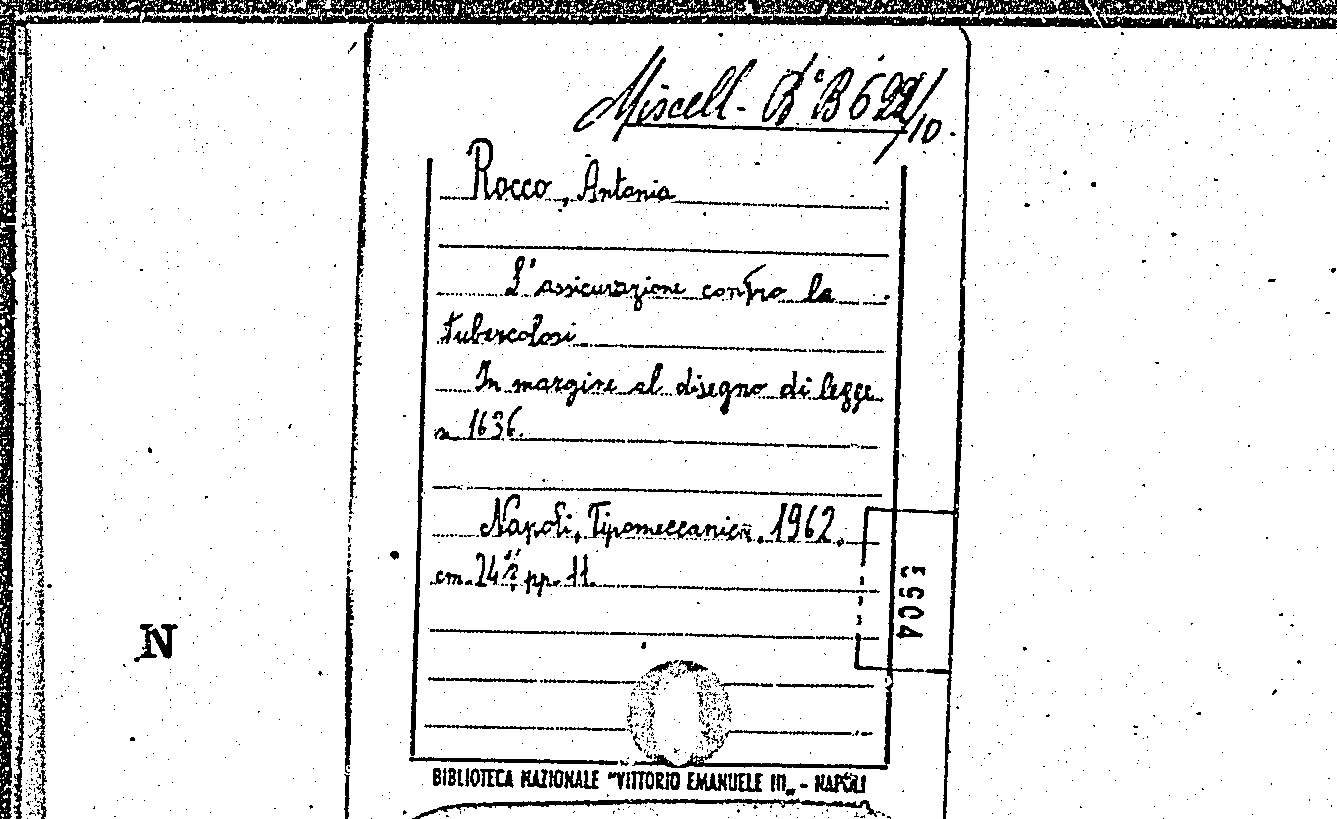 Miscell. B B 622/10.
Rocco, Antonia
L'assicurazione contro la
tubercolosi
In margine al disegno di legge
n. 1636.
Napoli, Tipomeccanica, 1962.
cm. 24 pp. 11.
5904
N
BIBLIOTECA NAZIONALE "VITTORIO EMANUELE III„ - NAPOLI